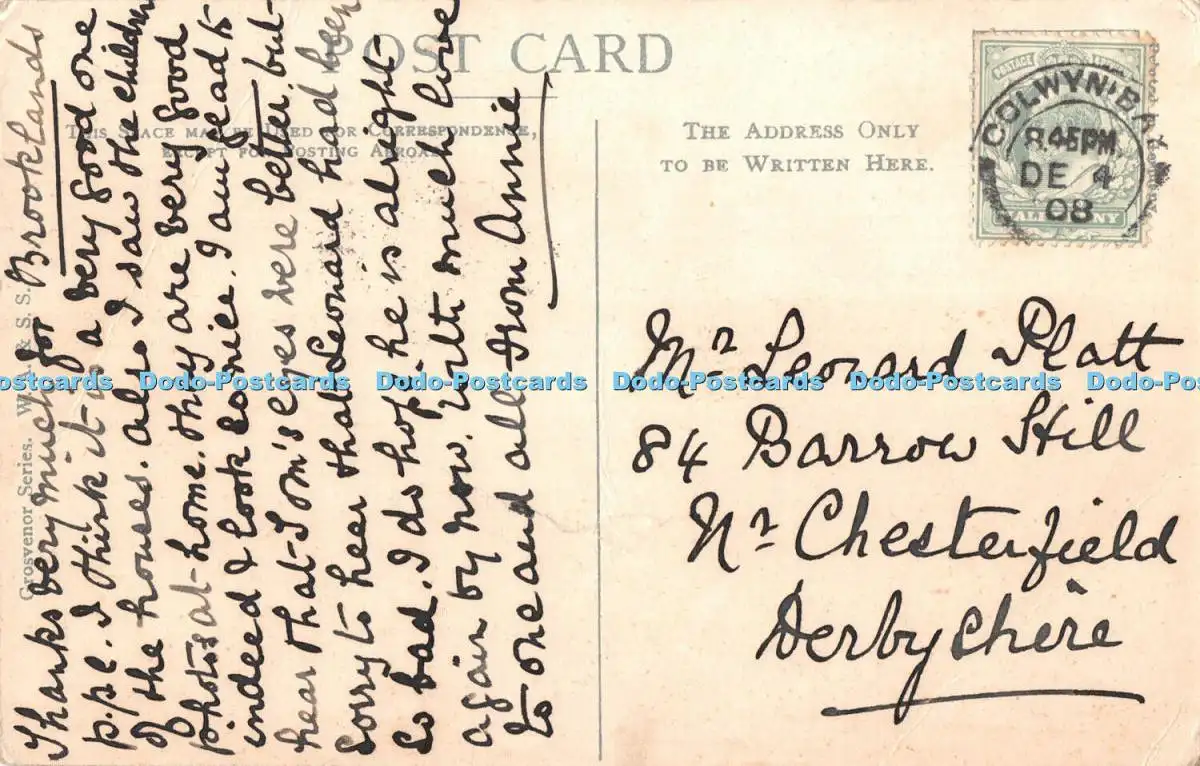 POST CARD
THIS SPACE MAY BE USED FOR CORRESPONDENCE,
EXCEPT FOR POSTING ABROAD.
THE ADDRESS ONLY
TO BE WRITTEN HERE.
COLWYN BAY
8.45PM
DE 4
08
POSTAGE
HALFPENNY
Grosvenor Series. W. A. & S. S.
Brooklands
Thanks very much for
p.p.c. I think it is a very good one
of the houses. also I saw the children
photos at home. they are very good
indeed & look so nice. I am glead to
hear that Tom's eyes were better, but
sorry to hear that Leonard had been
so bad. I do hope he is alright
again by now. With much love
to one and all from Annie
Mr Leonard Platt
84 Barrow Hill
Nr Chesterfield
Derbyshire
Dodo-Postcards Dodo-Postcards Dodo-Postcards Dodo-Postcards Dodo-Postcards Dodo-Postcards